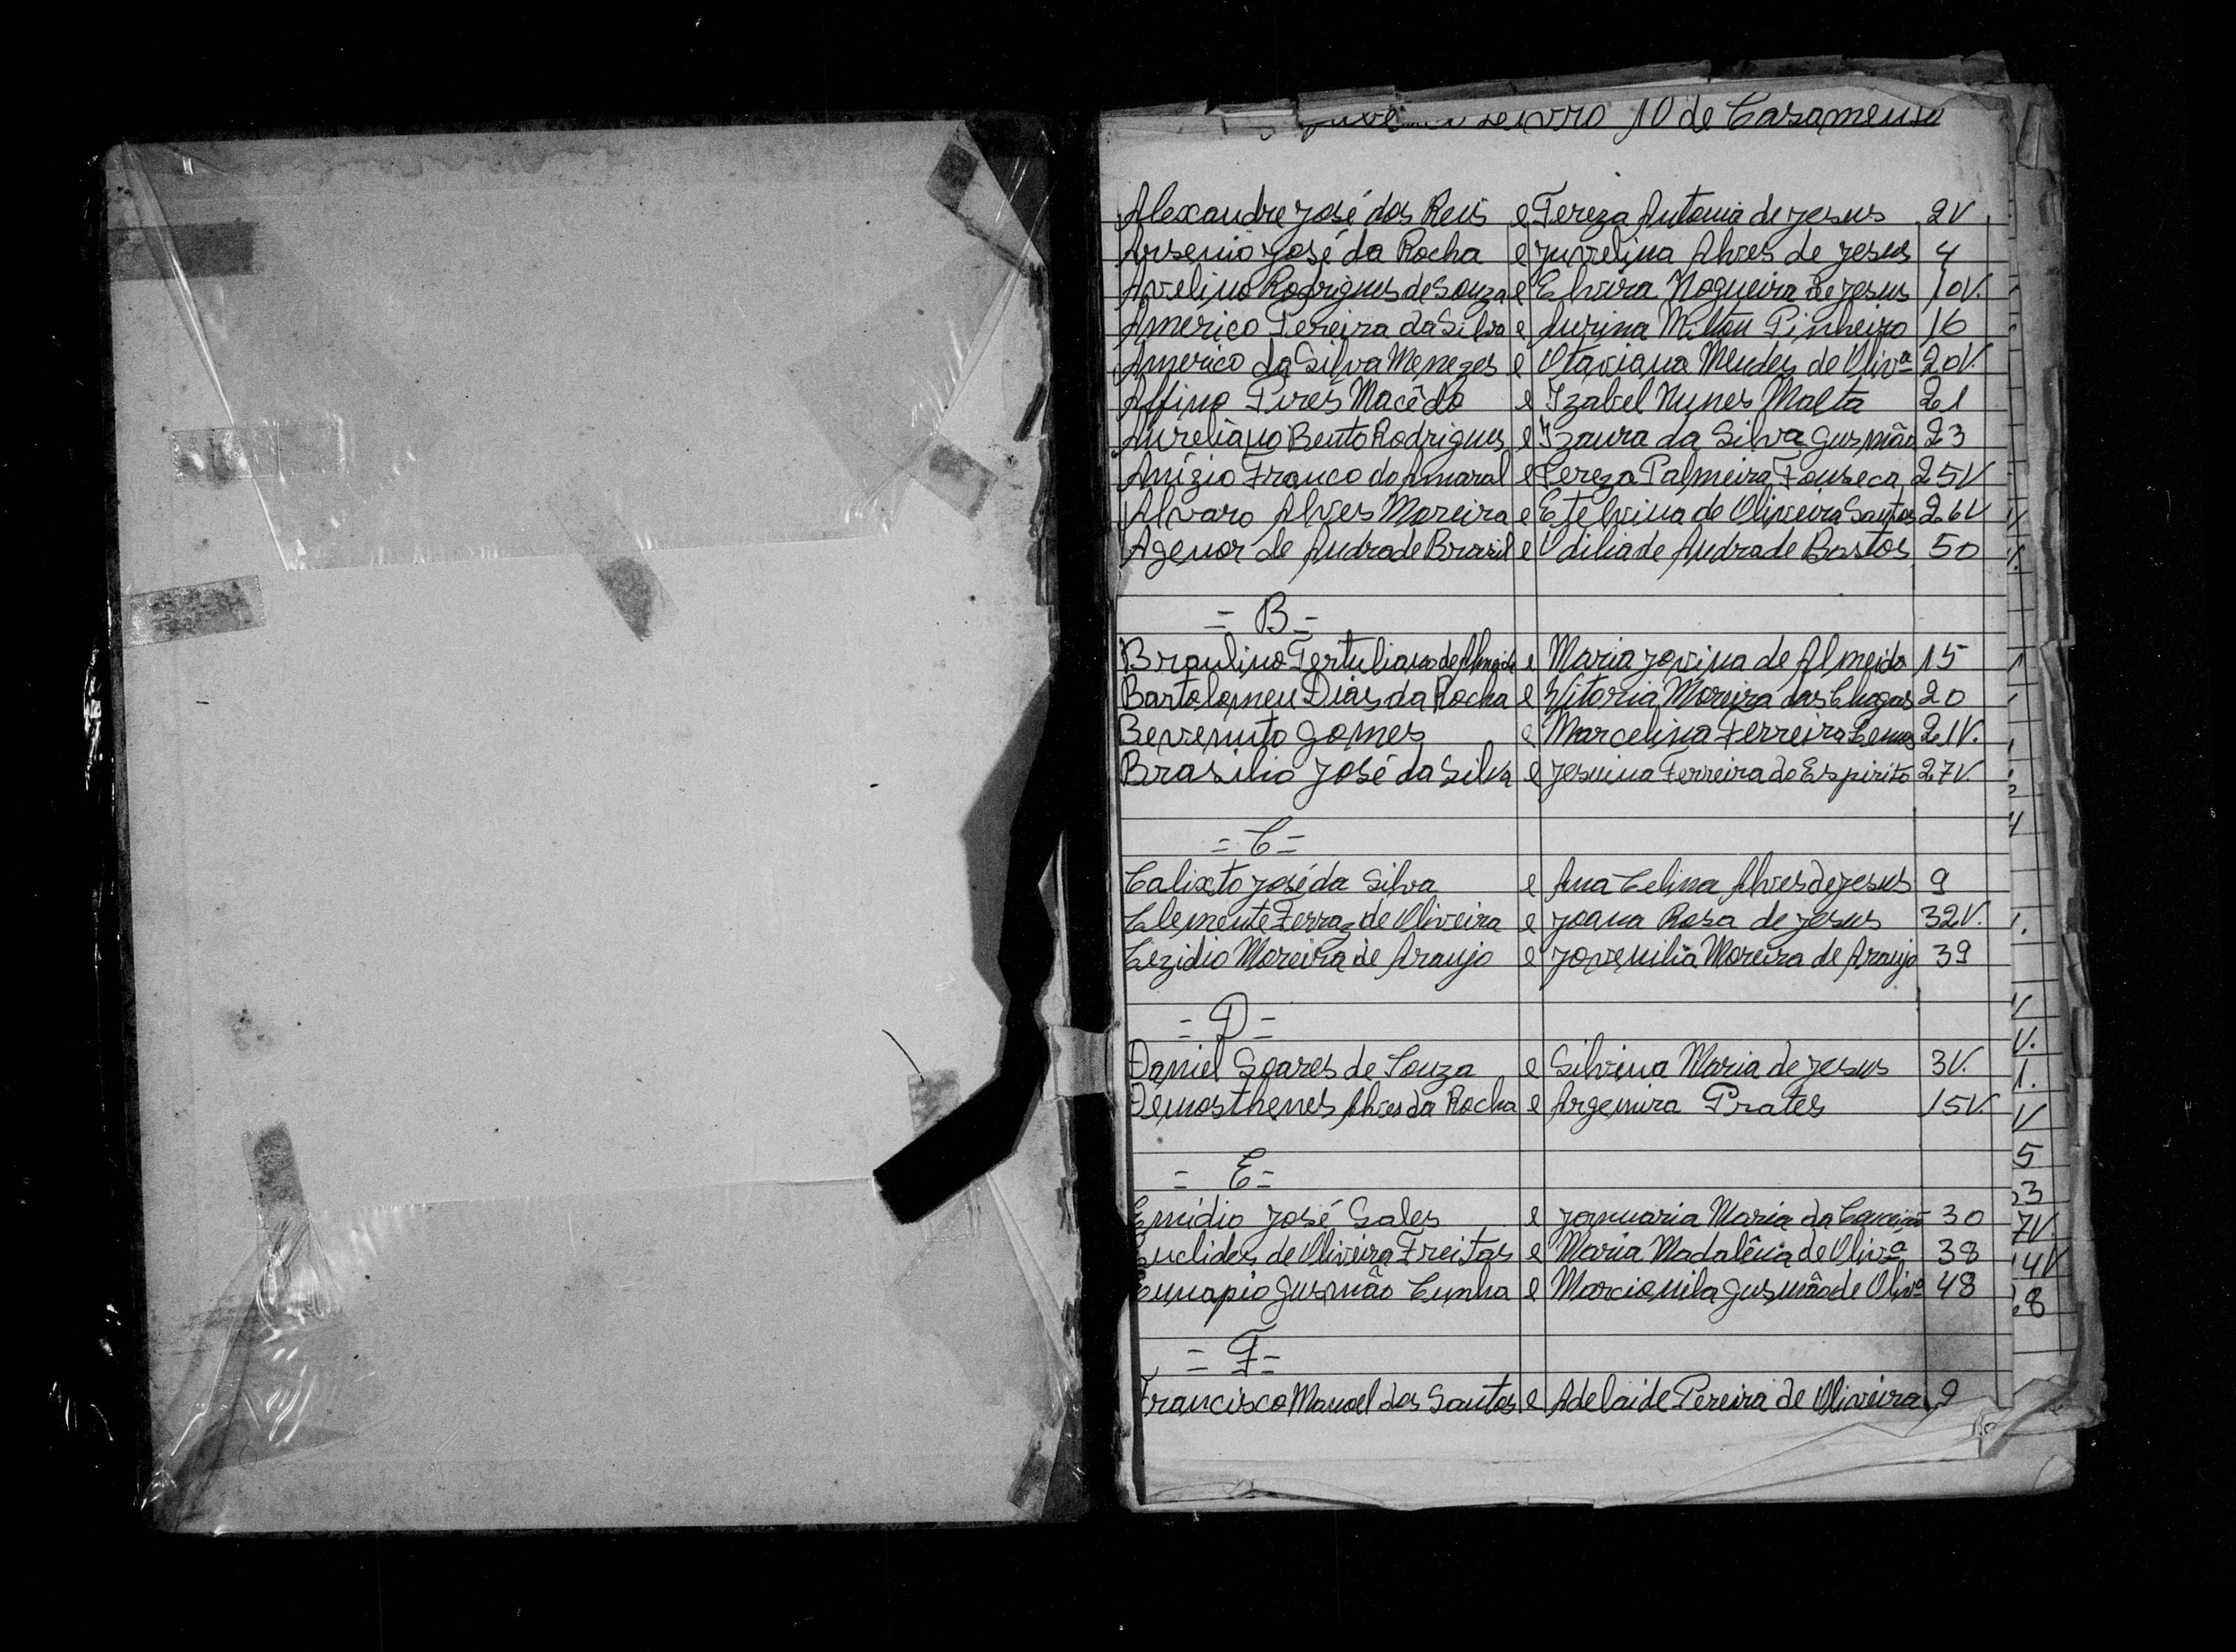 Livro 10 de Casamento
Alexandre José dos Reis e Tereza Antonia de Jesus 2V
Arsenio José da Rocha e Juvelina Alves de Jesus 4
Avelino Rodrigues de Souza e Elvira Nogueira de Jesus 10V.
Americo Pereira da Silva e Aurina Milton Pinheiro 16
Americo da Silva Menezes e Otaviana Mendes de Olivª 20V.
Affino Pires Macêdo e Izabel Nunes Malta 21
Aureliano Bento Rodrigues e Izaura da Silva Gusmão 23
Anízio Franco do Amaral e Tereza Palmeira Fonseca 25V
Alvaro Alves Moreira e Etelvina de Oliveira Santos 26V
Agenor de Andrade Brazil e Odilia de Andrade Bastos 50
= B =
Braulino Tertuliano de Almeida e Maria Jovina de Almeida 15
Bartolomeu Dias da Rocha e Vitoria Moreira das Chagas 20
Bevenuto Gomes e Marcelina Ferreira Lemos 21V.
Brasilio José da Silva e Jesuina Ferreira do Espirito 27V
= C =
Calixto José da Silva e Ana Celina Alves de Jesus 9
Clemente Ferraz de Oliveira e Joana Rosa de Jesus 32V.
Cezidio Moreira de Araujo e Jovenilia Moreira de Araujo 39
= D =
Daniel Soares de Souza e Silvina Maria de Jesus 3V.
Demosthenes Alves da Rocha e Argemira Prates 15V.
= E =
Emídio José Sales e Januaria Maria da Conceição 30
Euclides de Oliveira Freitas e Maria Madalêna de Olivª 38
Eunapio Gusmão Cunha e Marcionila Gusmão de Olivª 48
= F =
Francisco Manoel dos Santos e Adelaide Pereira de Oliveira 9